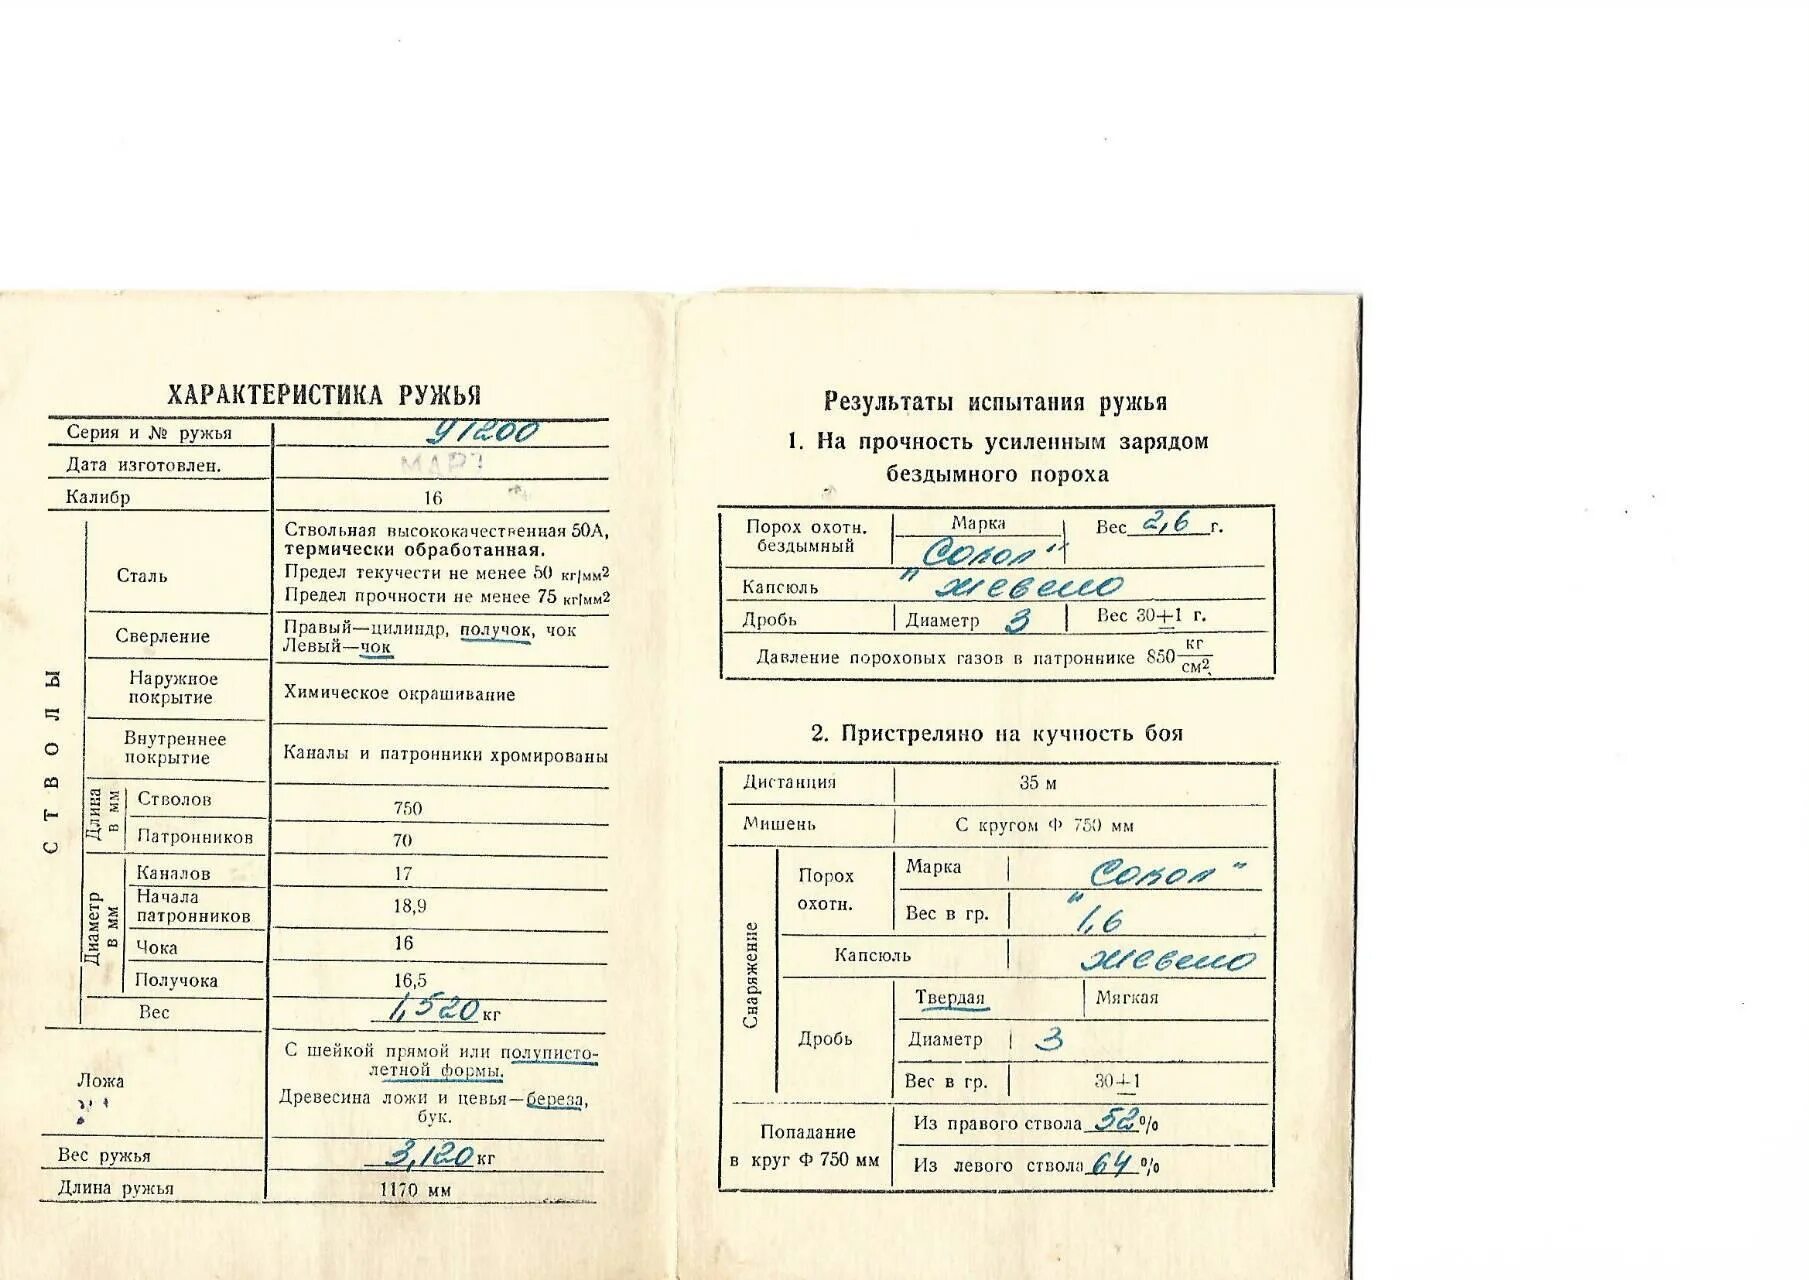 ХАРАКТЕРИСТИКА РУЖЬЯ
Серия и № ружья У1200
Дата изготовлен. МАРТ
Калибр 16
СТВОЛЫ
Сталь
Ствольная высококачественная 50А,
термически обработанная.
Предел текучести не менее 50 кг/мм2
Предел прочности не менее 75 кг/мм2
Сверление
Правый—цилиндр, получок, чок
Левый—чок
Наружное
покрытие
Химическое окрашивание
Внутреннее
покрытие
Каналы и патронники хромированы
Длина
в мм
Стволов 750
Патронников 70
Диаметр
в мм
Каналов 17
Начала
патронников 18,9
Чока 16
Получока 16,5
Вес 1,520 кг
Ложа
С шейкой прямой или полуписто-
летной формы.
Древесина ложи и цевья—береза,
бук.
Вес ружья 3,120 кг
Длина ружья 1170 мм
Результаты испытания ружья
1. На прочность усиленным зарядом
бездымного пороха
Порох охотн.
бездымный
Марка
„Сокол"
Вес 2,6 г.
Капсюль жевело
Дробь Диаметр 3 Вес 30±1 г.
Давление пороховых газов в патроннике 850 кг/см2
2. Пристреляно на кучность боя
Дистанция 35 м
Мишень С кругом Ф 750 мм
Снаряжение
Порох
охотн.
Марка „Сокол"
Вес в гр. 1,6
Капсюль жевело
Дробь
Твердая Мягкая
Диаметр 3
Вес в гр. 30±1
Попадание
в круг Ф 750 мм
Из правого ствола 52 %
Из левого ствола 64 %